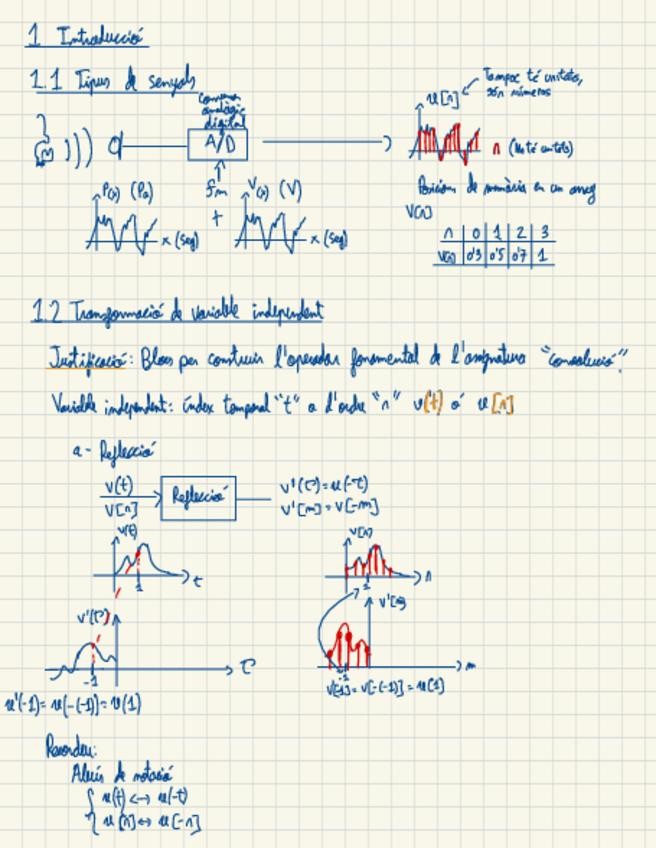 1 Introducció
1.1 Tipus de senyals
Conversor
analògic
digital
A/D
fm
+
P(x) (Pa)
x (seg)
V(x) (V)
x (seg)
v[n]
Tampoc té unitats,
són números
n (No té unitats)
Posicions de memòria en un array
V(n)
n 0 1 2 3
V(n) 0'3 0'5 0'7 1
1.2 Transformació de variable independent
Justificació: Blocs per construir l'operador fonamental de l'assignatura "convolució".
Variable independent: índex temporal "t" o d'ordre "n" v(t) ó v[n]
a- Reflecció
v(t)
v[n]
Reflecció
v'(τ)=v(-τ)
v'[m]=v[-m]
v(t)
1
t
v[n]
1
n
v'(τ)
-1
τ
v'[m]
-1
m
v'(-1)= v(-(-1))= v(1)
v[-1]= v[-(-1)] = v[1]
Recordeu:
Abús de notació
{ v(t) <-> v(-t)
v[n] <-> v[-n]